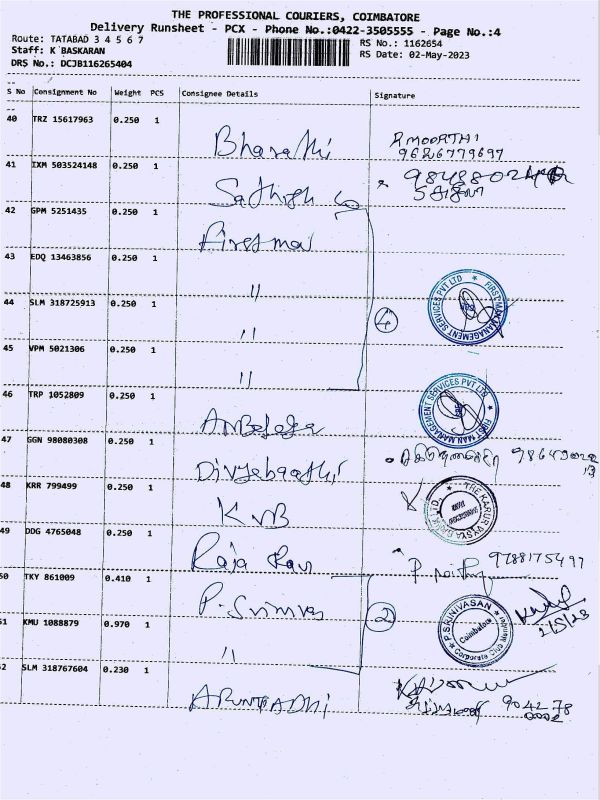 THE PROFESSIONAL COURIERS, COIMBATORE
Delivery Runsheet - PCX - Phone No.:0422-3505555 - Page No.:4
Route: TATABAD 3 4 5 6 7
RS No.: 1162654
Staff: K BASKARAN
RS Date: 02-May-2023
DRS No.: DCJB116265404
S No Consignment No Weight PCS Consignee Details Signature
40 TRZ 15617963 0.250 1 Bharathi R MOORTHI
9626779697
41 IXM 503524148 0.250 1 Sathish
42 GPM 5251435 0.250 1 First man
43 EDQ 13463856 0.250 1 "
FIRST MAN MANAGEMENT SERVICES PVT LTD
44 SLM 318725913 0.250 1 " 4
45 VPM 5021306 0.250 1 "
FIRST MAN MANAGEMENT SERVICES PVT LTD
46 TRP 1052809 0.250 1
47 GGN 98080308 0.250 1
48 KRR 799499 0.250 1 KVB
THE KARUR VYSYA BANK LTD.
49 DDG 4765048 0.250 1 Raja Ran 9788175497
50 TKY 861009 0.410 1 P. Srinivas 2
P. SRINIVASAN
Coimbatore
Corporate Club
2/5/23
51 KMU 1088879 0.970 1 "
52 SLM 318767604 0.230 1 ARUNTHADHI 904278
0002